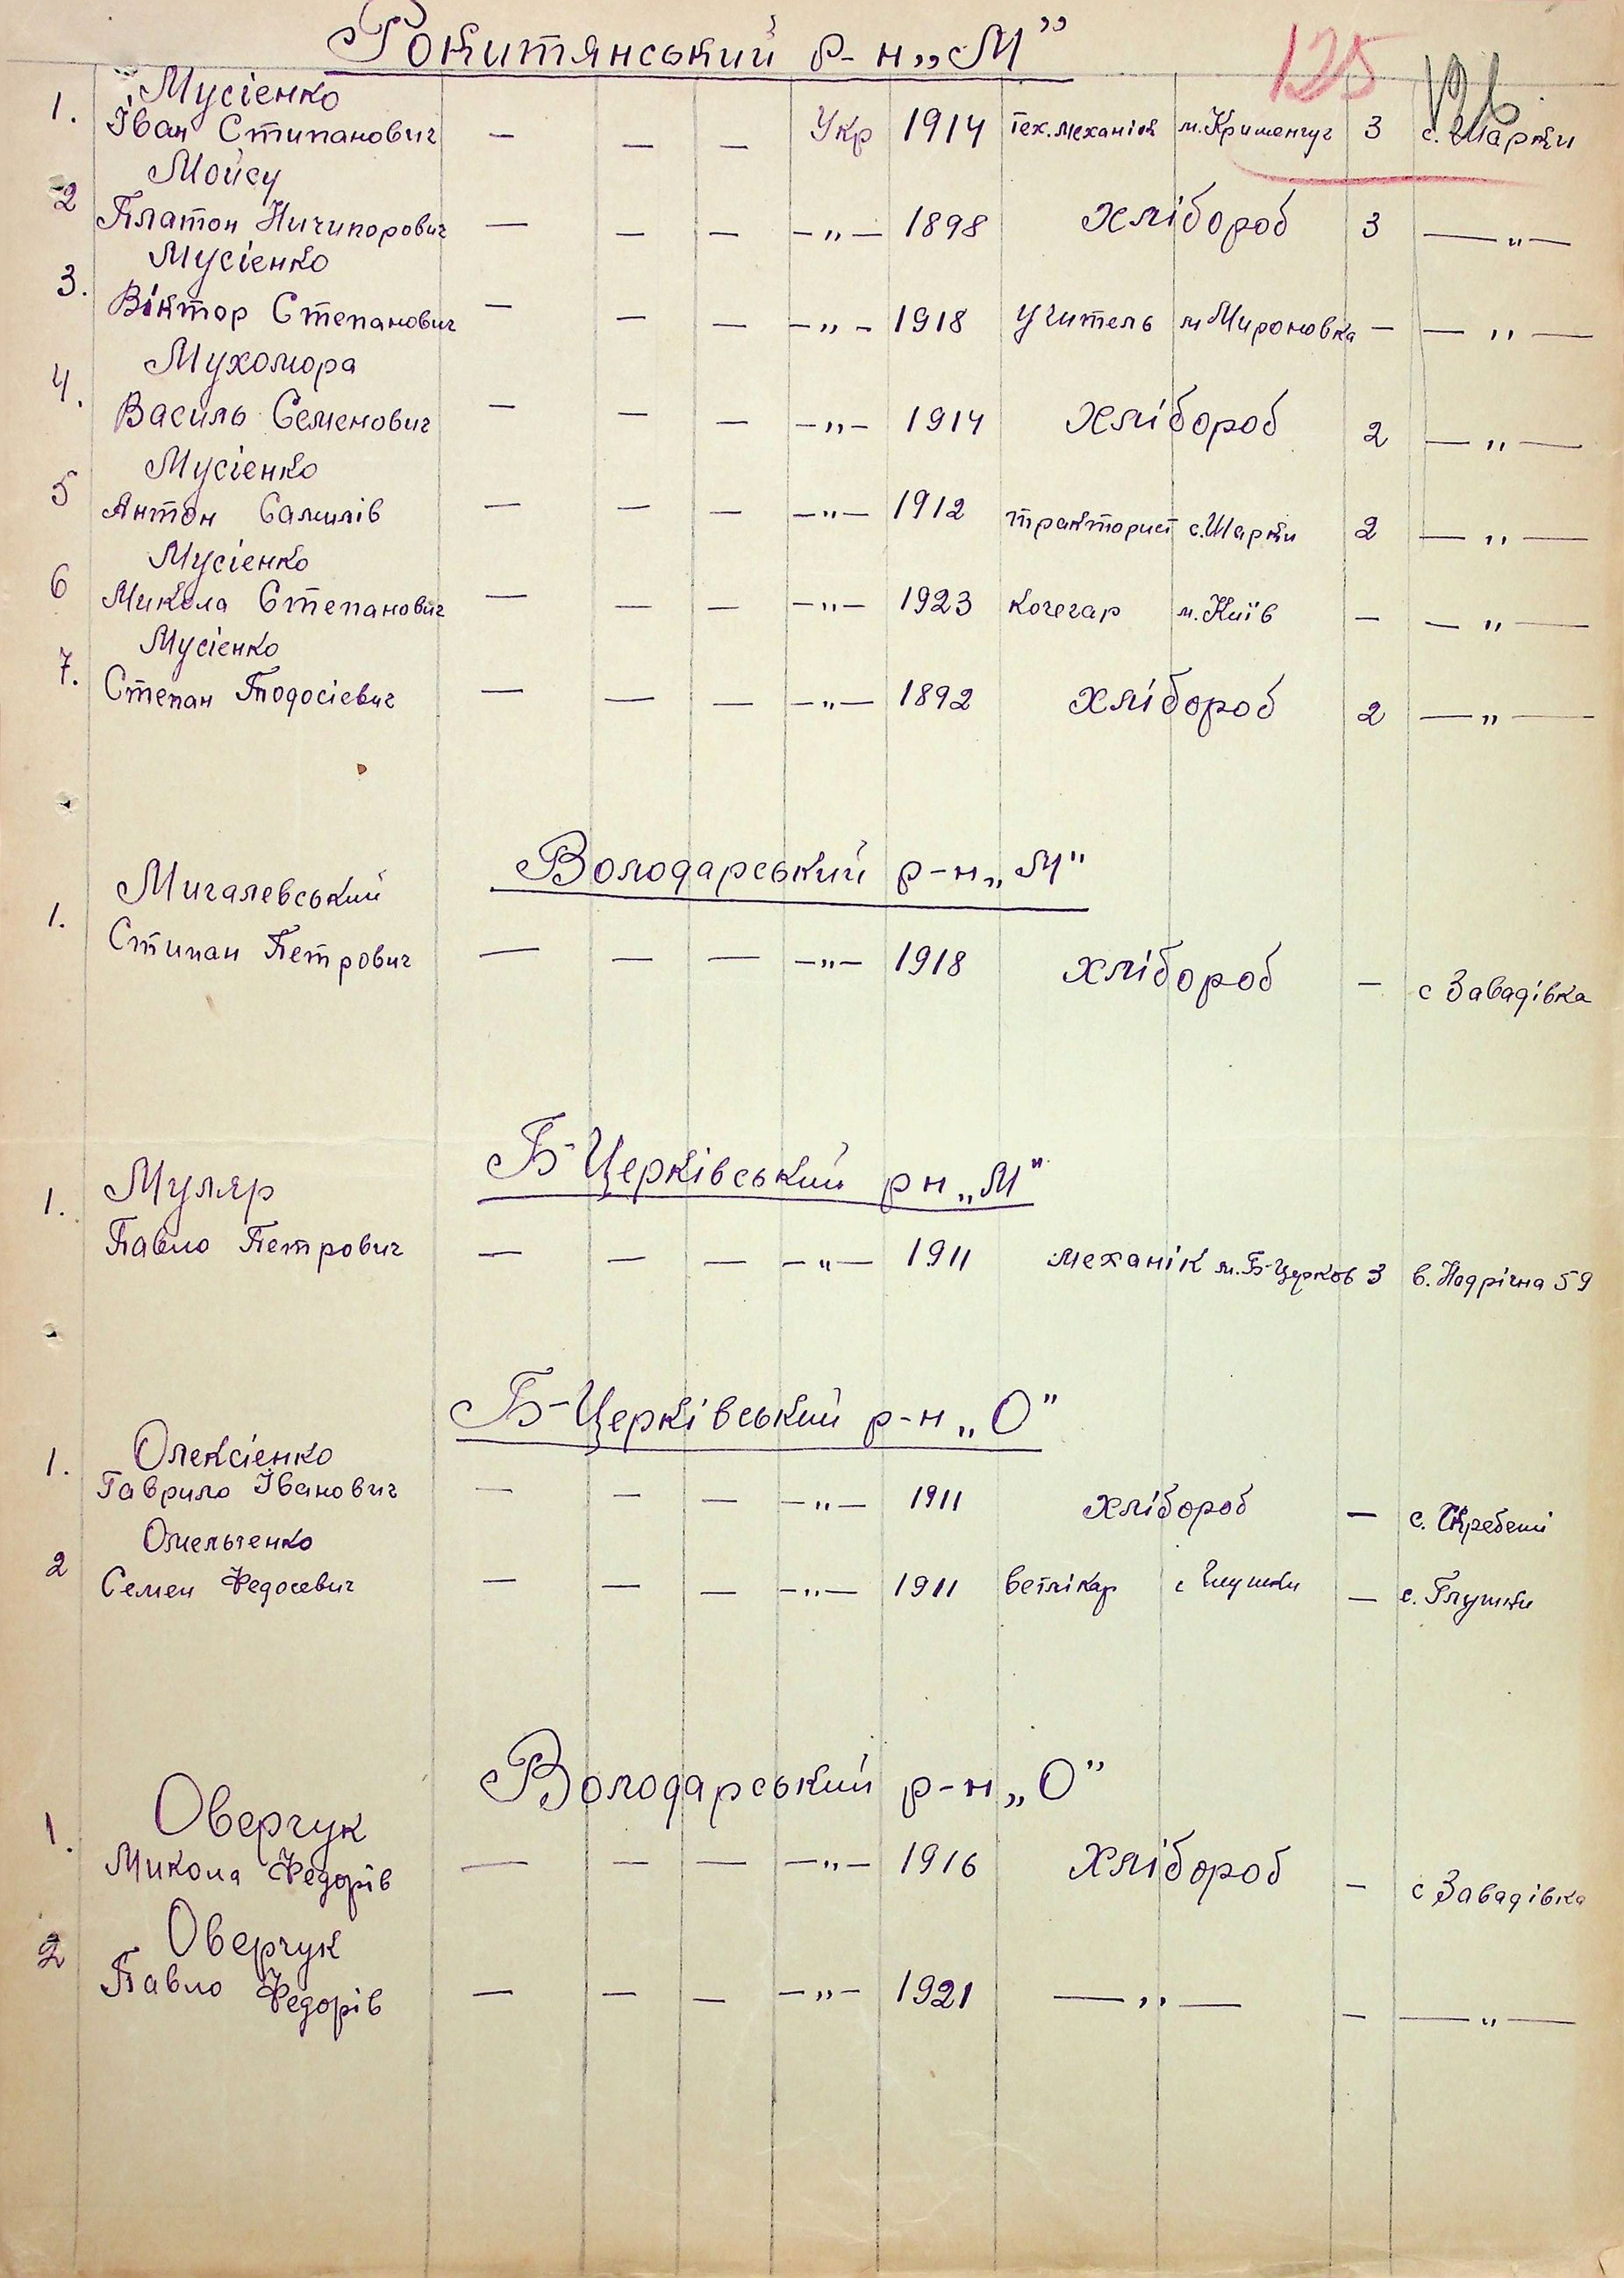 Рокитянський р-н „М”
125
126
Мусієнко
1. Іван Стипанович — — — Укр 1914 Тех. механік м. Крименчуг 3 с. Шарки
Мойсу
2 Платон Ничипорович — — — —„— 1898 Хлібороб 3 —„—
Мусієнко
3. Віктор Степанович — — — —„— 1918 Учитель м Мироновка — —„—
Мухомора
4. Василь Семенович — — — —„— 1914 Хлібороб 2 —„—
Мусієнко
5 Антон Самилів — — — —„— 1912 тракторист с. Шарки 2 —„—
Мусієнко
6 Микола Степанович — — — —„— 1923 Кочегар м. Київ — —„—
Мусієнко
7. Степан Тодосієвич — — — —„— 1892 Хлібороб 2 —„—
Володарський р-н „М"
Мигалевський
1. Стипан Петрович — — — —„— 1918 Хлібороб — с Завадівка
Б-Церківський рн „М"
Муляр
1. Павло Петрович — — — —„— 1911 Механік м. Б-Церков 3 в. Надрічна 59
Б-Церківський р-н „О"
Олексієнко
1. Гаврило Іванович — — — —„— 1911 Хлібороб — с. Скребеші
Омельченко
2 Семен Федосевич — — — —„— 1911 ветлікар с Глушки — с. Глушки
Володарський р-н „О”
Оверчук
1. Микола Федорів — — — —„— 1916 Хлібороб — с Завадівка
Оверчук
2 Павло Федорів — — — —„— 1921 —„— — —„—